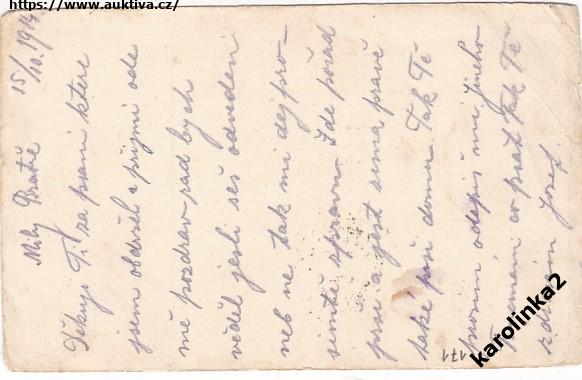 https://www.auktiva.cz/
15/10. 1914
Milý Bratře
Děkuji Ti za psaní ktere
jsem obdržel a přijmi ode
mě pozdrav rad bych
věděl jesli seš odveden
neb ne tak mi dej pro-
simtě spravu Zde pořad
prší a jest zima pravě
také prší doma Tak Tě
prosim odepiš mi jineho
neznám co psat Tak Tě
zdravím Josef.
171
karolinka2